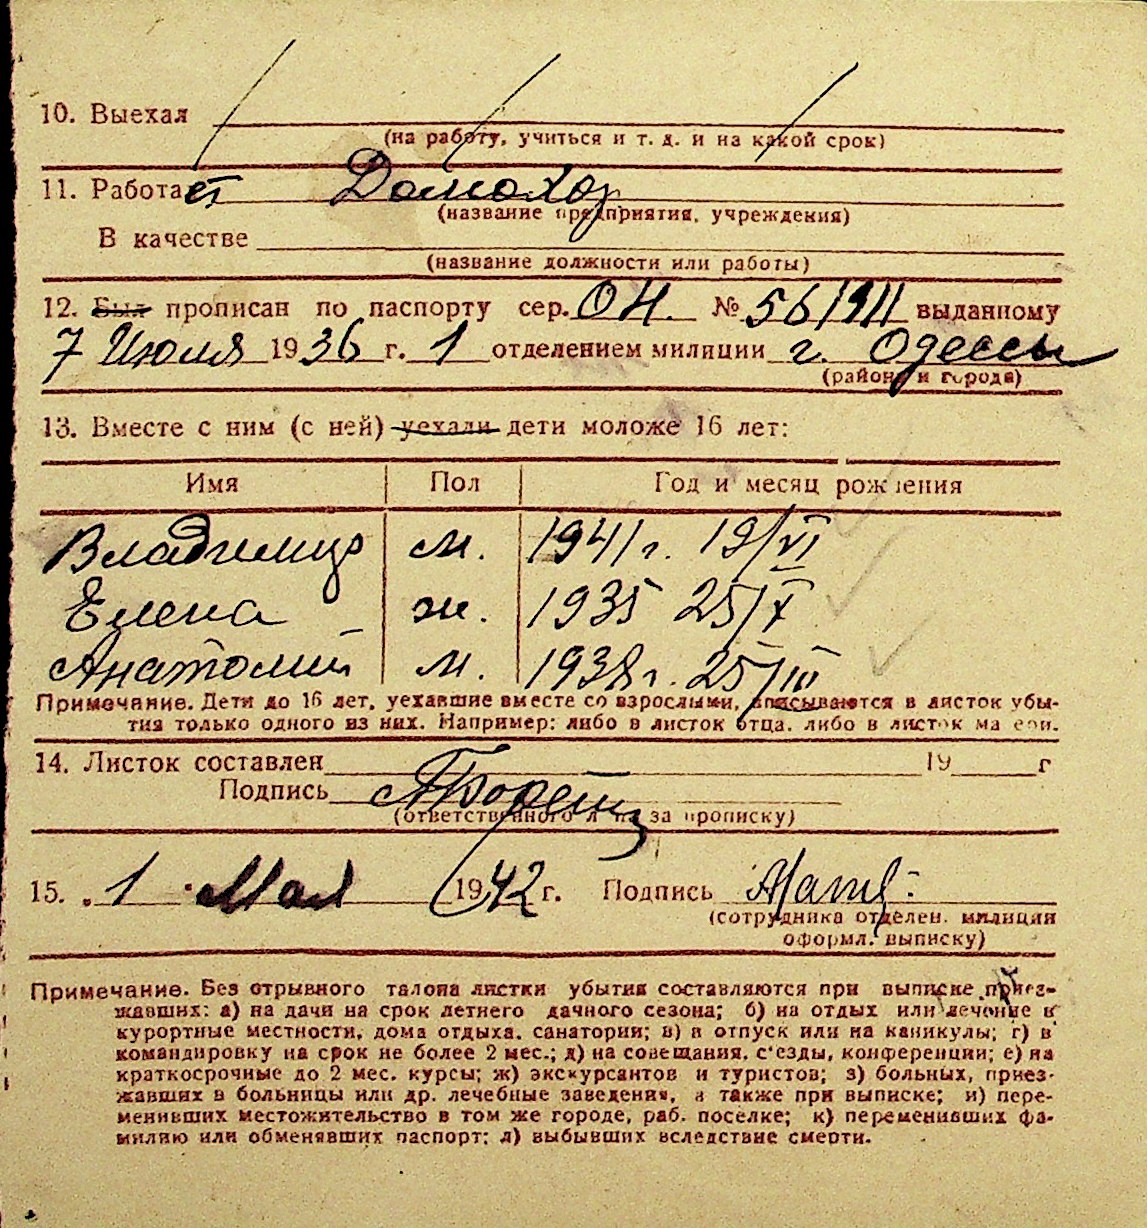 10. Выехал
(на работу, учиться и т. д. и на какой срок)
11. Работает Домохоз
(название предприятия, учреждения)
В качестве
(название должности или работы)
12. Был прописан по паспорту сер. ОН. № 561911 выданному
7 Июля 1936 г. 1 отделением милиции г. Одессы
(района и города)
13. Вместе с ним (с ней) уехали дети моложе 16 лет:
Имя Пол Год и месяц рождения
Владимир м. 1941 г. 19/VI
Елена ж. 1935 25/X
Анатолий м. 1938 г. 25/III
Примечание. Дети до 16 лет, уехавшие вместе со взрослыми, вписываются в листок убы-
тия только одного из них. Например: либо в листок отца, либо в листок матери.
14. Листок составлен 19 г
Подпись
(ответственного л на за прописку)
15. 1 Мая 1942 г. Подпись
(сотрудника отделен. милиции
оформл. выписку)
Примечание. Без отрывного талона листки убытия составляются при выписке приез-
жавших: а) на дачи на срок летнего дачного сезона; б) на отдых или лечение в
курортные местности, дома отдыха, санатории; в) в отпуск или на каникулы; г) в
командировку на срок не более 2 мес.; д) на совещания, с'езды, конференции; е) на
краткосрочные до 2 мес. курсы; ж) экскурсантов и туристов; з) больных, приез-
жавших в больницы или др. лечебные заведения, а также при выписке; и) пере-
менивших местожительство в том же городе, раб. поселке; к) переменивших фа-
милию или обменявших паспорт; л) выбывших вследствие смерти.